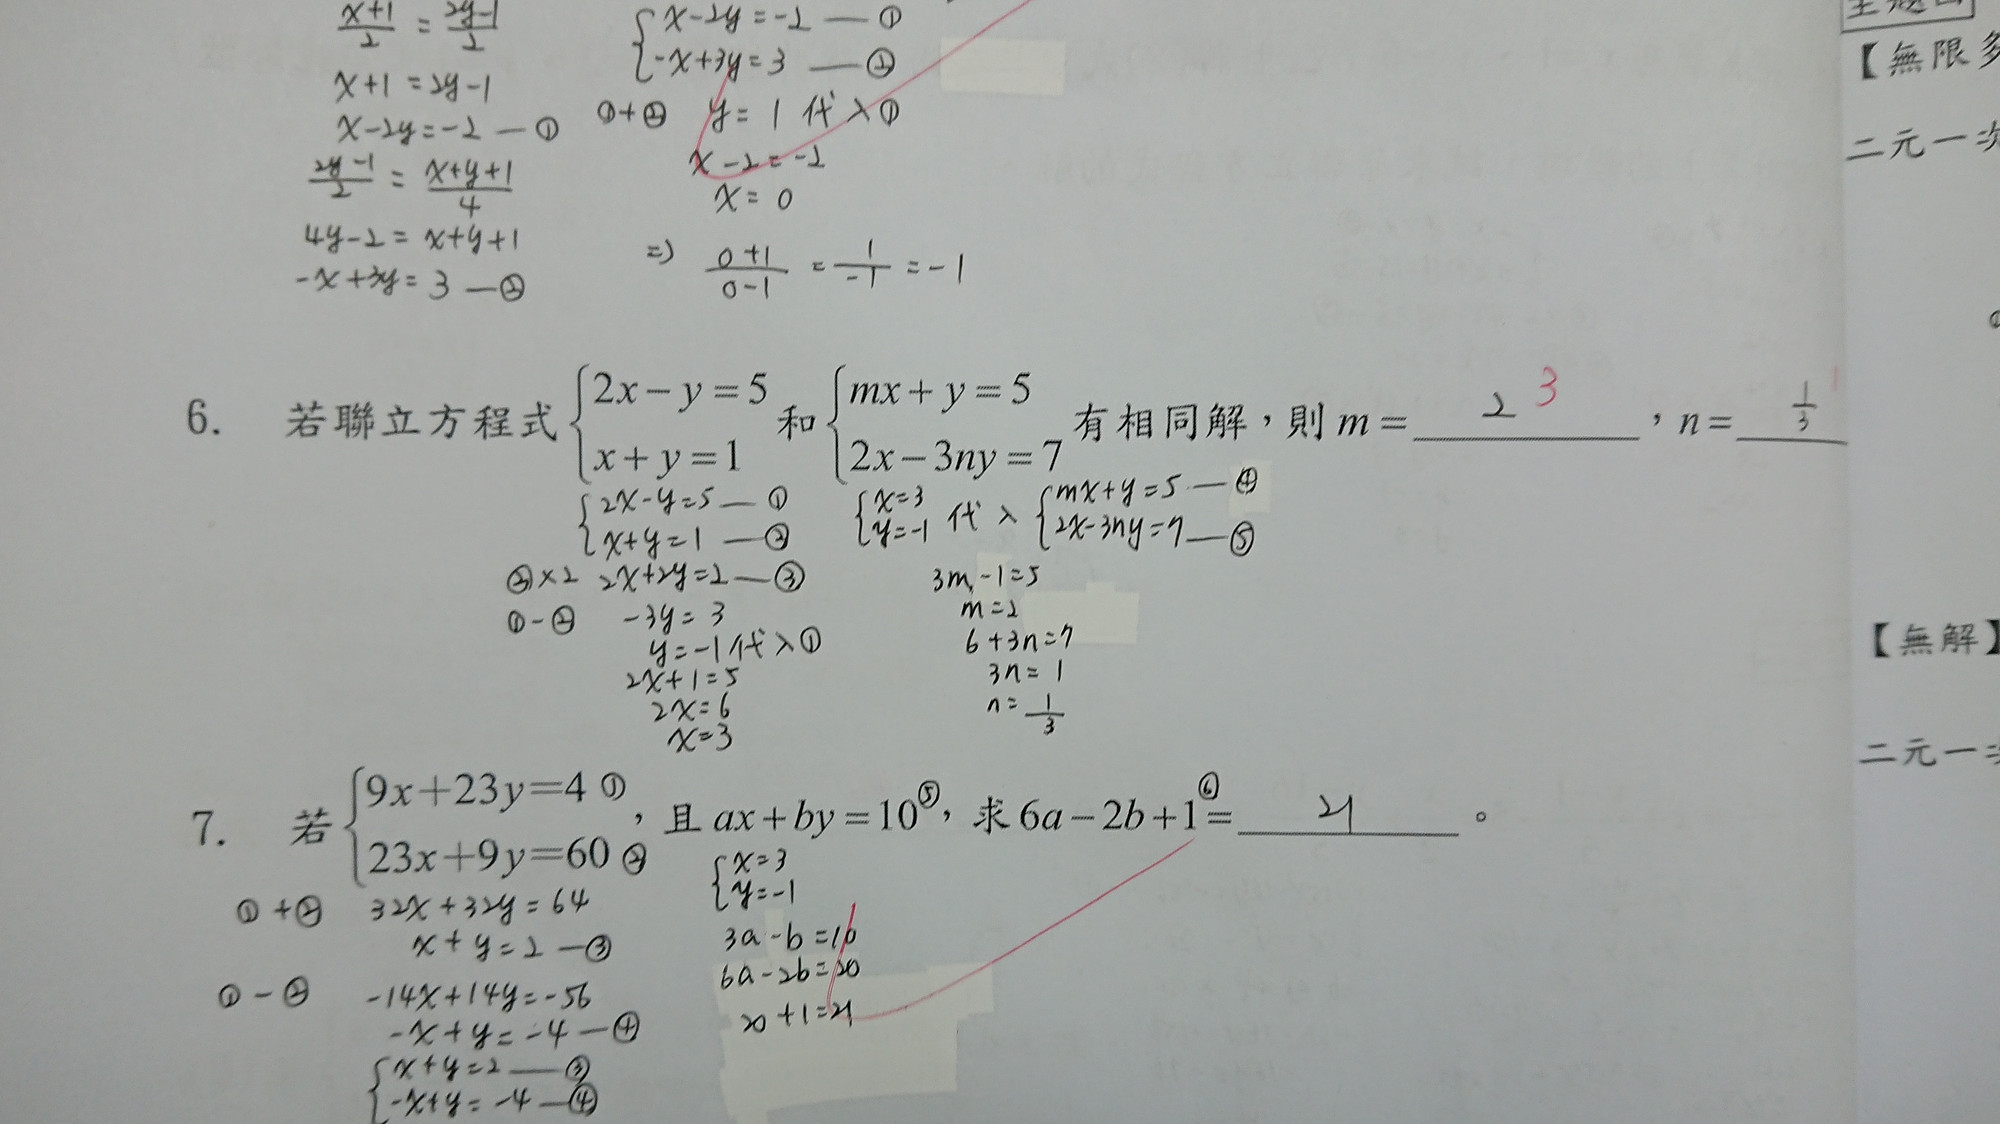 x+1/2 = 2y-1/2
x+1 = 2y-1
x-2y=-2 — ①
2y-1/2 = x+y+1/4
4y-2 = x+y+1
-x+3y=3 — ②
{x-2y=-2 — ①
-x+3y=3 — ②
①+② y=1 代入①
x-2=-2
x=0
=) 0+1/0-1 = 1/-1 = -1
6. 若聯立方程式{2x-y=5 x+y=1 和{mx+y=5 2x-3ny=7 有相同解,則m= 2 3 ,n= 1/3 1
{2x-y=5 — ①
x+y=1 — ②
②×2 2x+2y=2 — ③
①-② -3y=3
y=-1代入①
2x+1=5
2x=6
x=3
{x=3 y=-1 代入{mx+y=5 — ④ 2x-3ny=7 — ⑤
3m-1=5
m=2
6+3n=7
3n=1
n=1/3
7. 若{9x+23y=4 ① 23x+9y=60 ② ,且ax+by=10⑤,求6a-2b+1⑥= 21 。
①+② 32x+32y=64
x+y=2 — ③
①-② -14x+14y=-56
-x+y=-4 — ④
{x+y=2 — ③
-x+y=-4 — ④
{x=3
y=-1
3a-b=10
6a-2b=20
20+1=21
【無限多
二元一次
【無解】
二元一次